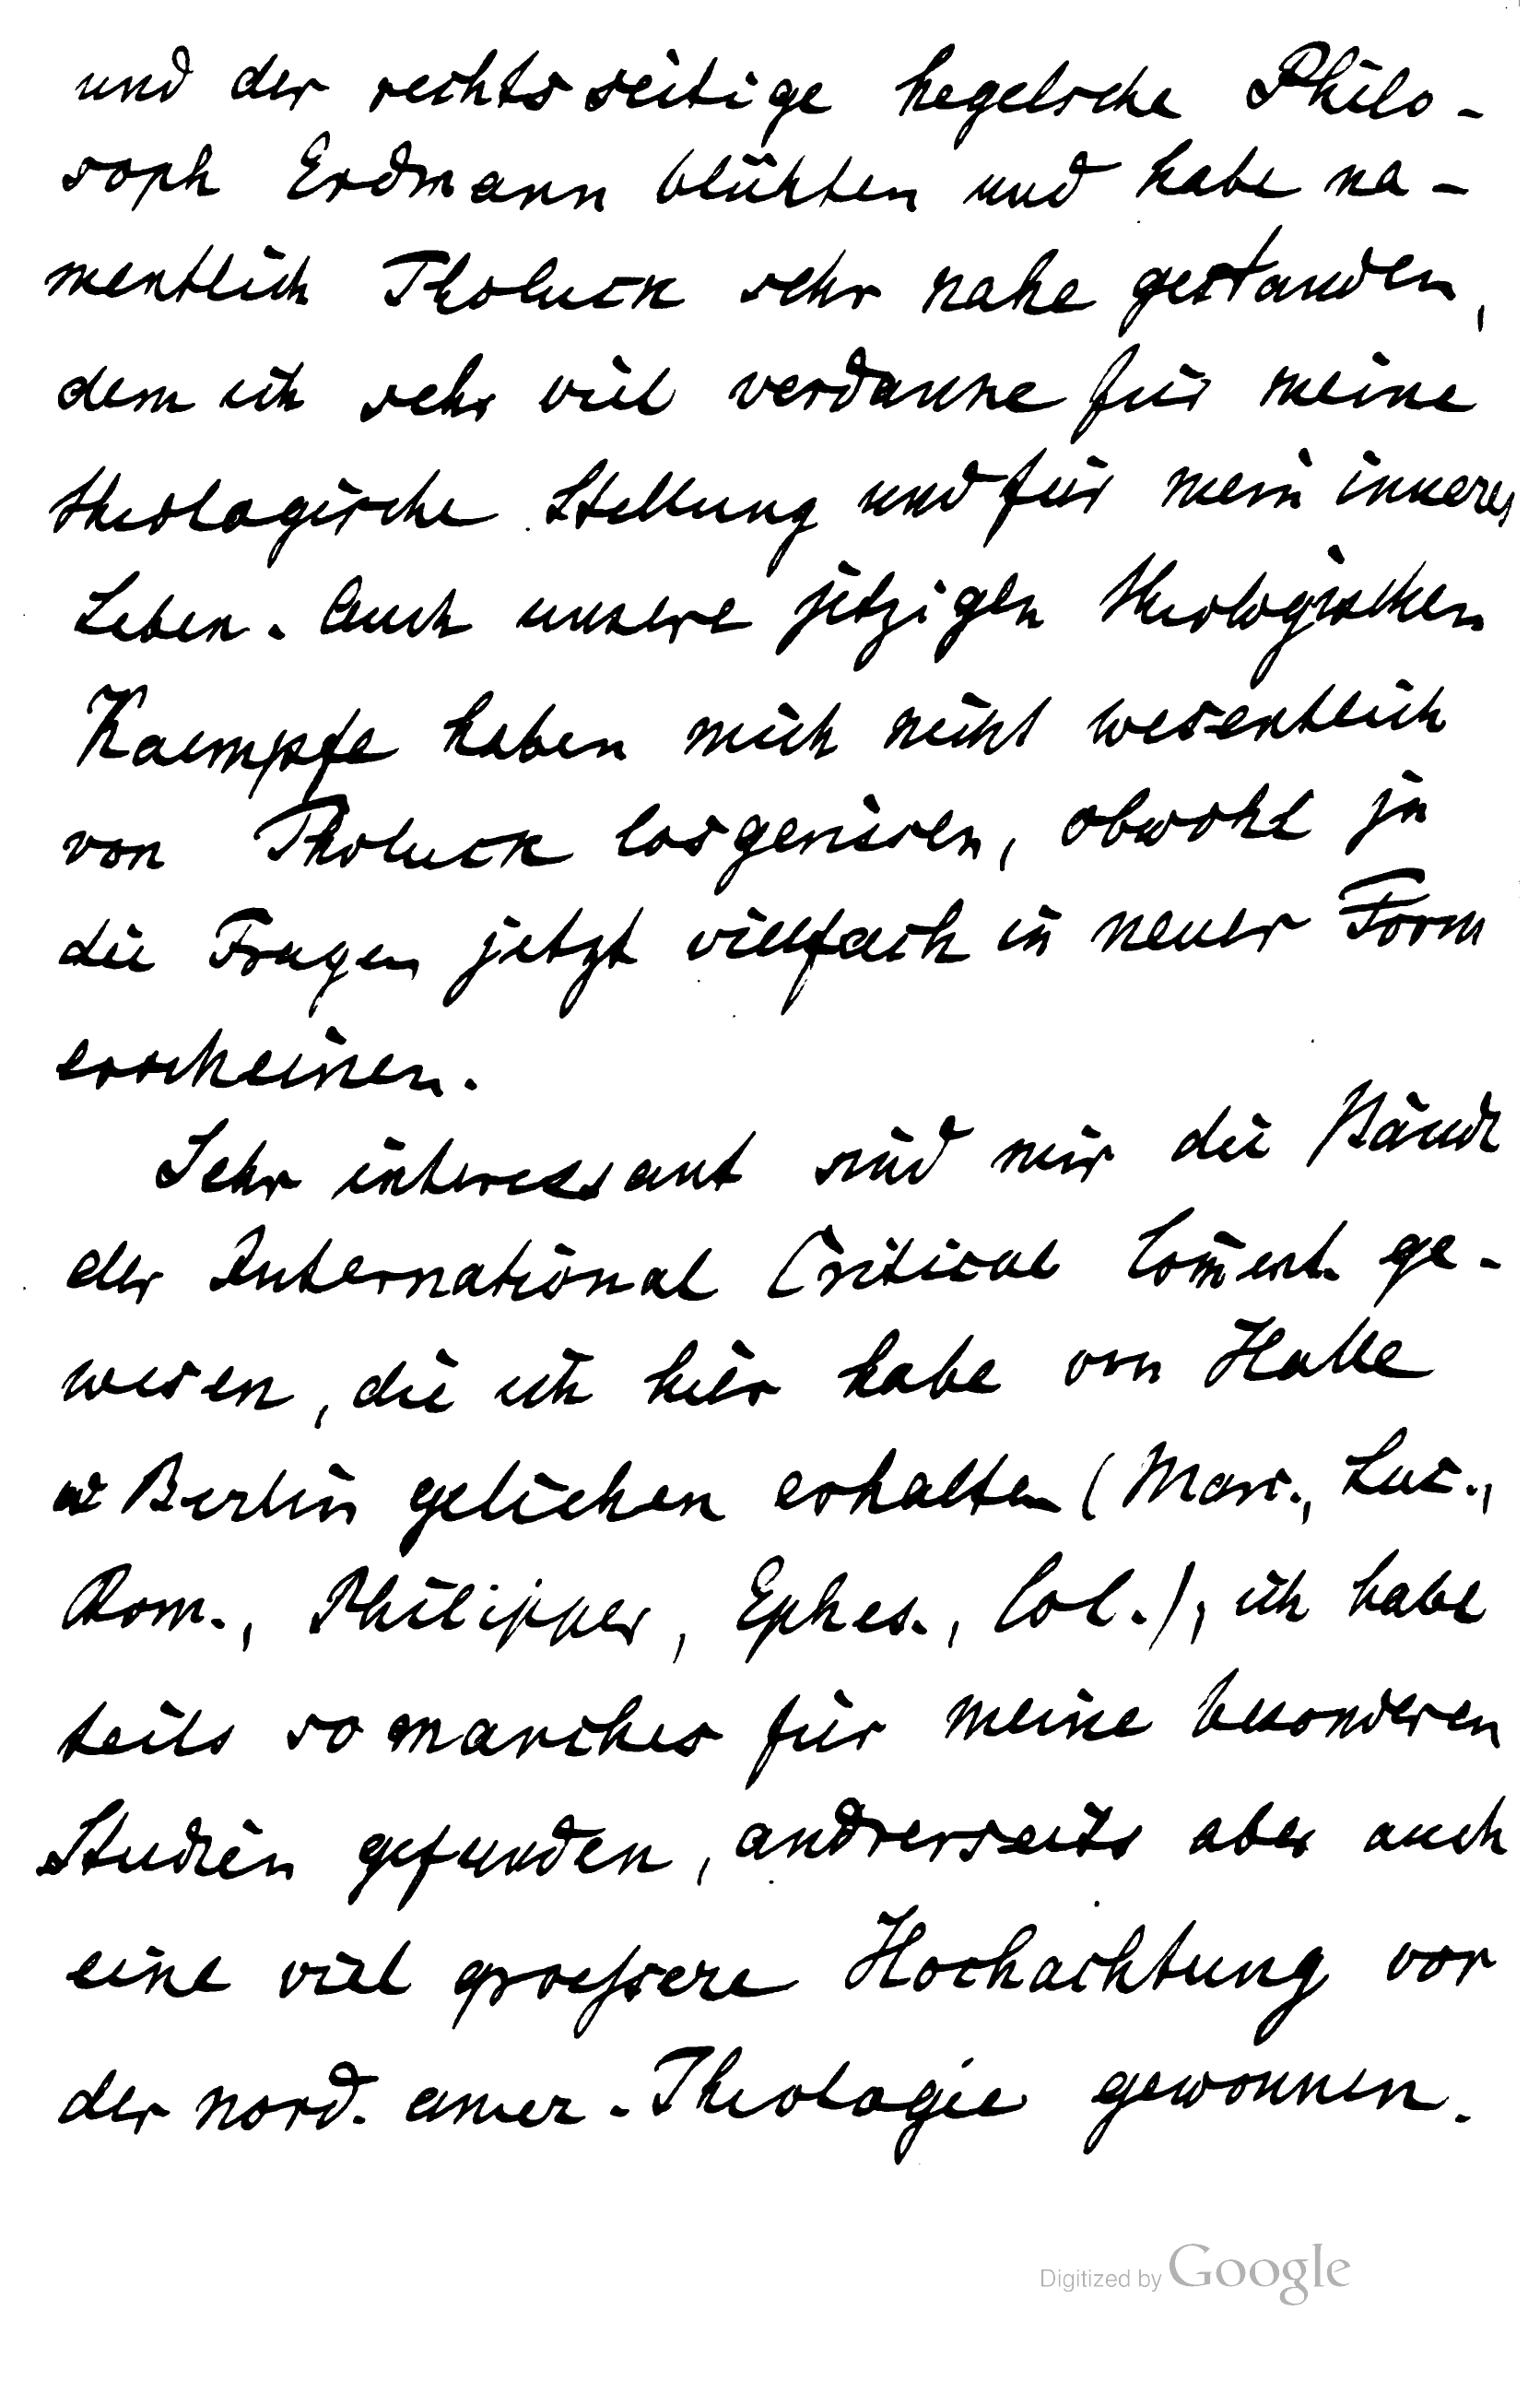 und der rechtsseitige hegelsche Philo-
soph Erdmann blühten und habe na-
mentlich Tholuck sehr nahe gestanden,
dem ich sehr viel verdanke für meine
theologische Stellung und für mein inneres
Leben. Auch unsere jetzigen theologischen
Kaempfe haben mich nicht wesentlich
von Tholuck losgerissen, obwohl ja
die Fragen jetzt vielfach in neuer Form
erscheinen.
Sehr interessant sind mir die Bände
der International Critical Com̄ent. ge-
wesen, die ich hier habe von Halle
u Berlin geliehen erhalten (Marc., Luc.,
Rom., Philipper, Ephes., Col.), ich habe
teils so manches für meine besonderen
Studien gefunden, andrerseits aber auch
eine viel groessere Hochachtung vor
der nord. amer. Theologie gewonnen.
Digitized by Google